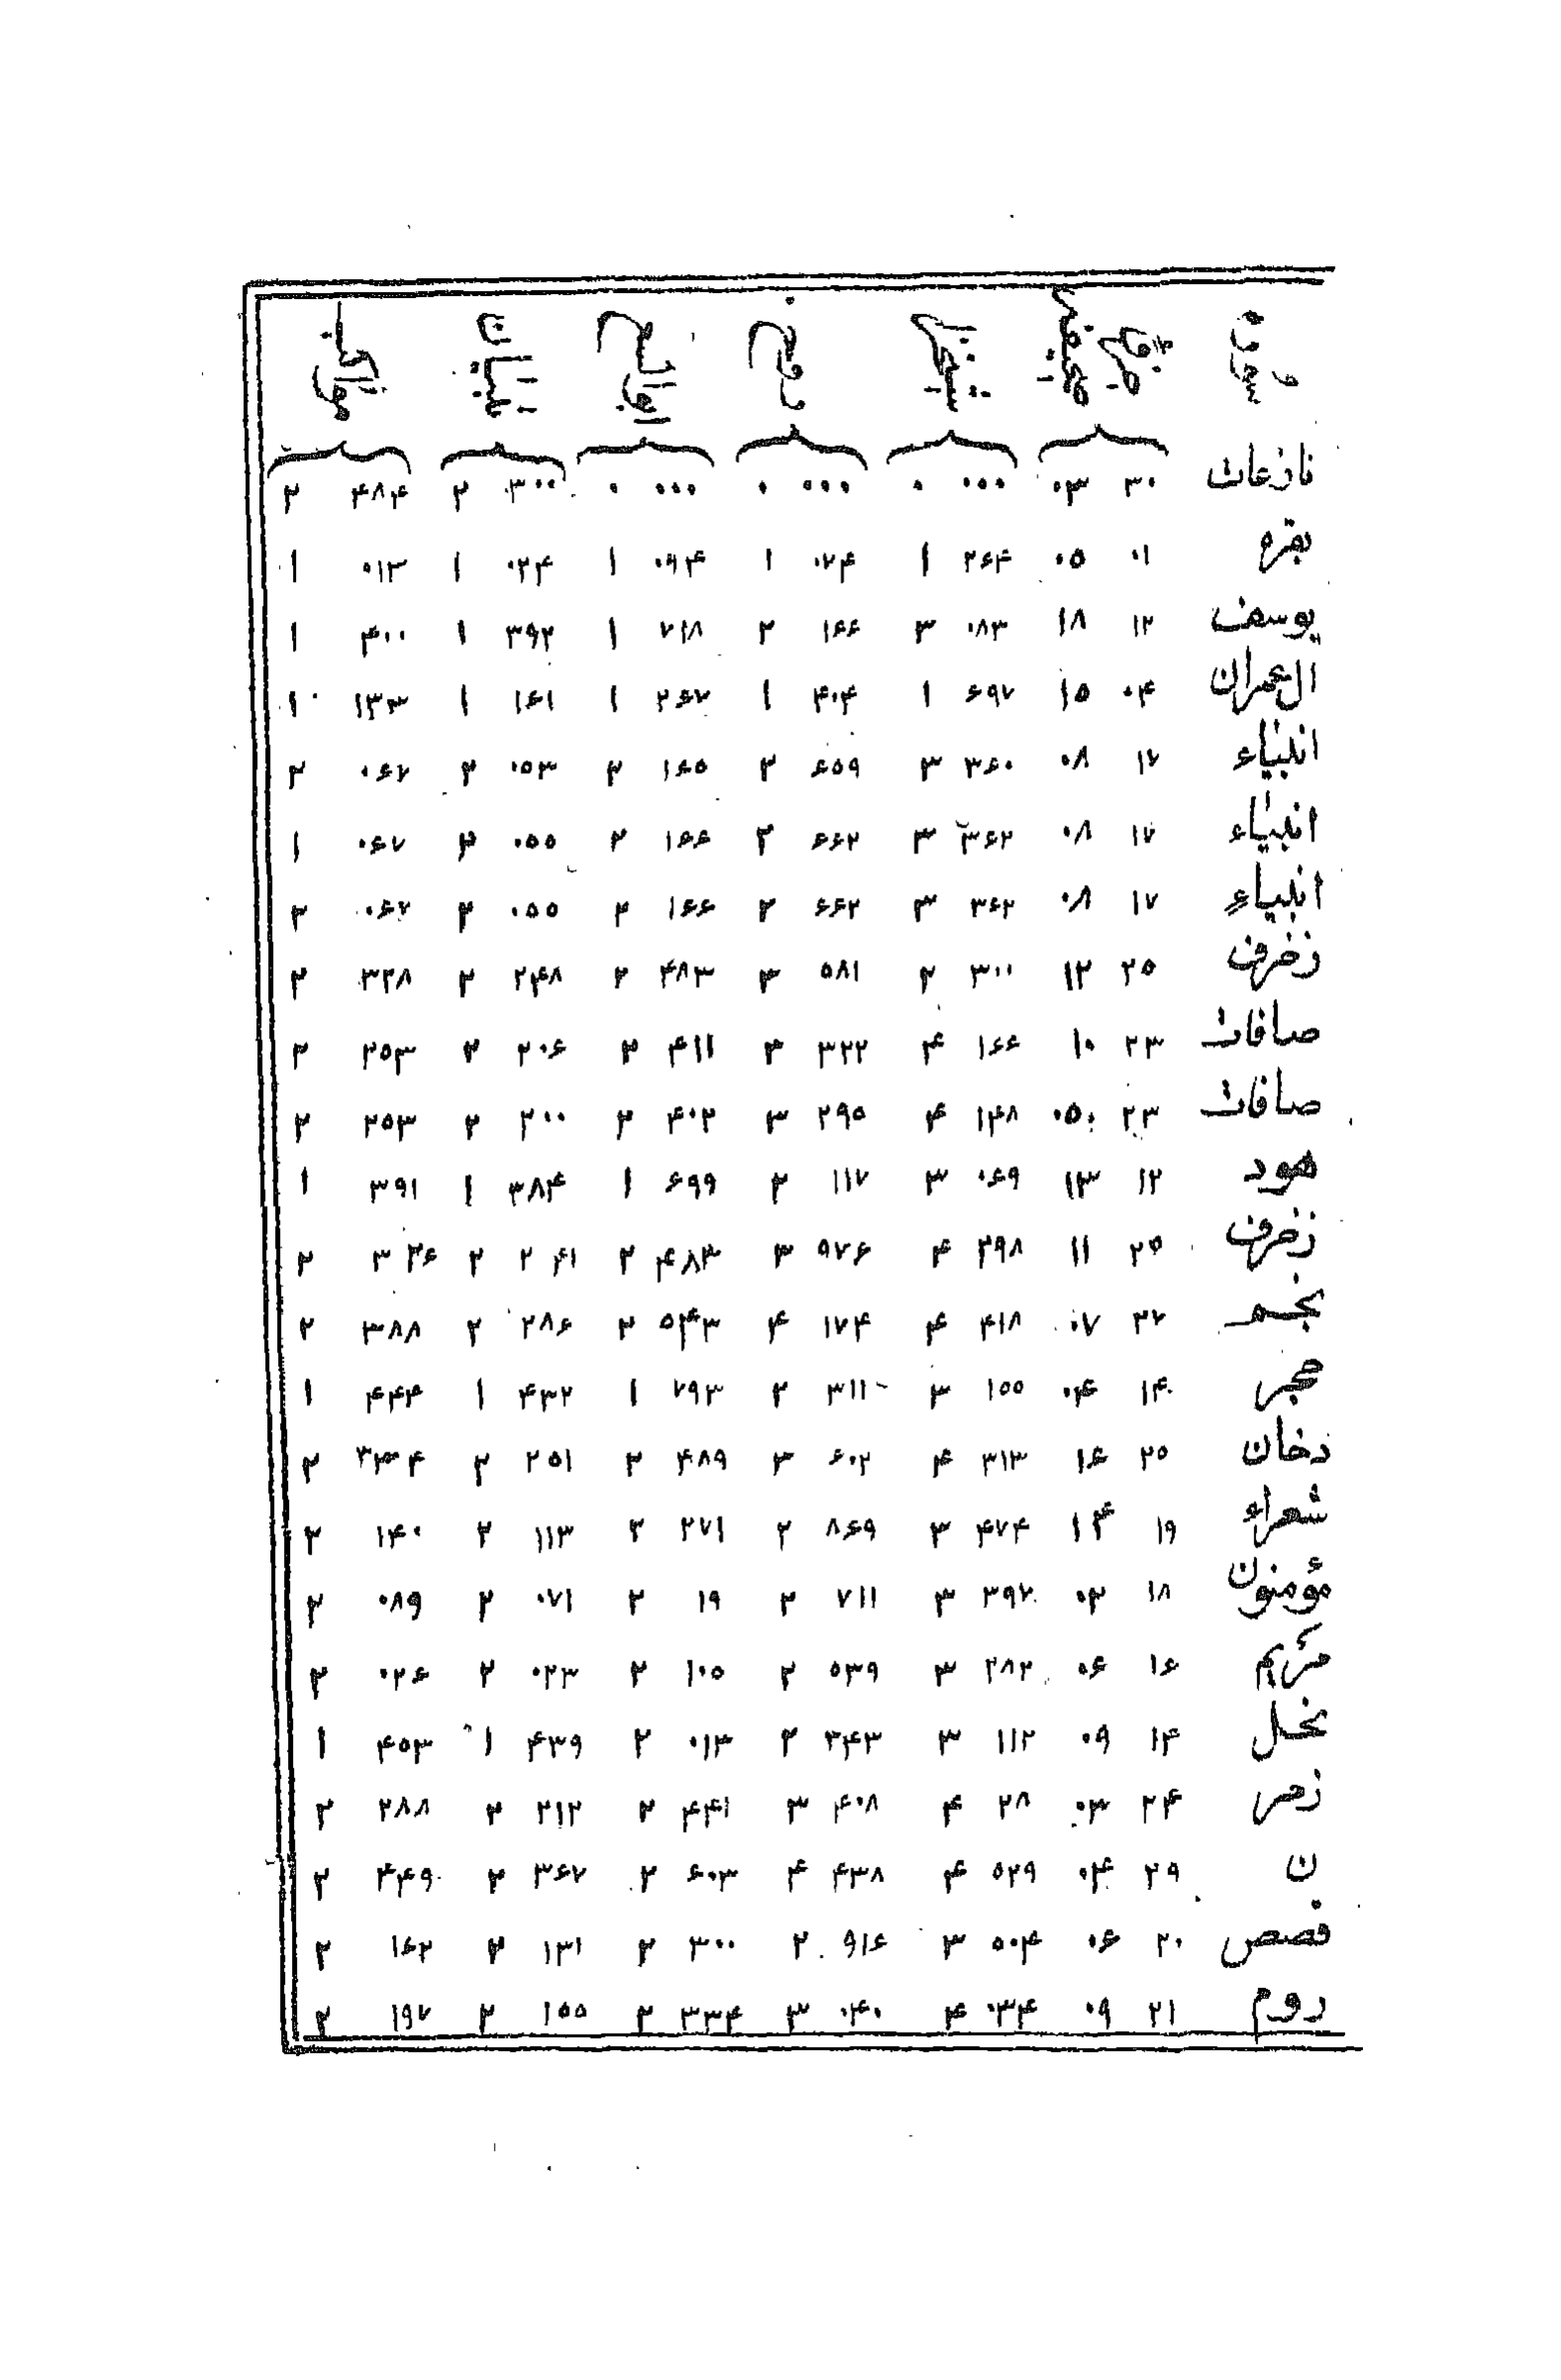 نازعات ۳۰ ۰۳ ۰۰۰ ۰ ۰۰۰ ۰ ۰۰۰ ۰ ۳۰۰ ۲ ۴۸۴ ۲
بقره ۰۱ ۰۵ ۲۶۴ ۱ ۰۷۴ ۱ ۰۹۴ ۱ ۰۲۴ ۱ ۰۱۳ ۱
یوسف ۱۲ ۱۸ ۰۸۳ ۳ ۱۶۶ ۲ ۷۱۸ ۱ ۳۹۲ ۱ ۴۰۰ ۱
ال عمران ۰۴ ۱۵ ۶۹۷ ۱ ۴۰۴ ۱ ۲۶۷ ۱ ۱۶۱ ۱ ۱۳۳ ۱
انبیاء ۱۷ ۰۸ ۳۶۰ ۳ ۶۵۹ ۲ ۱۶۵ ۲ ۰۵۳ ۲ ۰۶۷ ۲
انبیاء ۱۷ ۰۸ ۳۶۲ ۳ ۶۶۲ ۲ ۱۶۶ ۲ ۰۵۵ ۲ ۰۶۷ ۱
انبیاء ۱۷ ۰۸ ۳۶۲ ۳ ۶۶۲ ۲ ۱۶۶ ۲ ۰۵۵ ۲ ۰۶۷ ۲
زخرف ۲۵ ۱۲ ۳۰۰ ۲ ۵۸۱ ۳ ۴۸۳ ۲ ۲۴۸ ۲ ۳۲۸ ۲
صافات ۲۳ ۱۰ ۱۶۶ ۴ ۳۲۲ ۳ ۴۱۱ ۲ ۲۰۶ ۲ ۲۵۳ ۲
صافات ۲۳ ۰۵ ۱۴۸ ۴ ۲۹۵ ۳ ۴۰۲ ۲ ۲۰۰ ۲ ۲۵۳ ۲
هود ۱۲ ۱۳ ۰۶۹ ۳ ۱۱۷ ۲ ۶۹۹ ۱ ۳۸۴ ۱ ۳۹۱ ۱
زخرف ۲۵ ۱۱ ۲۹۸ ۴ ۵۷۶ ۳ ۴۸۳ ۲ ۲۴۱ ۲ ۳۲۶ ۲
نجم ۲۷ ۰۷ ۴۱۸ ۴ ۱۷۴ ۴ ۵۴۳ ۲ ۲۸۶ ۲ ۳۸۸ ۲
حجر ۱۴ ۰۴ ۱۵۵ ۳ ۳۱۱ ۲ ۷۹۳ ۱ ۴۳۲ ۱ ۴۴۴ ۱
دخان ۲۵ ۱۶ ۳۱۳ ۴ ۶۰۲ ۳ ۴۸۹ ۲ ۲۵۱ ۲ ۳۳۴ ۲
شعراء ۱۹ ۱۴ ۴۷۴ ۳ ۸۶۹ ۲ ۲۷۱ ۲ ۱۱۳ ۲ ۱۴۰ ۲
مؤمنون ۱۸ ۰۲ ۳۹۷ ۳ ۷۱۱ ۲ ۱۹ ۲ ۰۷۱ ۲ ۰۸۹ ۲
مریم ۱۶ ۰۶ ۲۸۲ ۳ ۵۳۹ ۲ ۱۰۵ ۲ ۰۲۳ ۲ ۰۲۶ ۲
نحل ۱۴ ۰۹ ۱۱۲ ۳ ۲۴۳ ۲ ۰۱۳ ۲ ۴۳۹ ۱ ۴۵۳ ۱
زمر ۲۴ ۰۳ ۲۸ ۴ ۴۰۸ ۳ ۴۴۱ ۲ ۲۱۲ ۲ ۲۸۸ ۲
ن ۲۹ ۰۴ ۵۲۹ ۴ ۴۳۸ ۴ ۶۰۳ ۲ ۳۶۷ ۲ ۴۴۹ ۲
قصص ۲۰ ۰۶ ۵۰۴ ۳ ۹۱۶ ۲ ۳۰۰ ۲ ۱۳۱ ۲ ۱۶۲ ۲
روم ۲۱ ۰۹ ۰۳۴ ۴ ۰۴۰ ۳ ۳۳۴ ۲ ۱۵۵ ۲ ۱۹۷ ۲